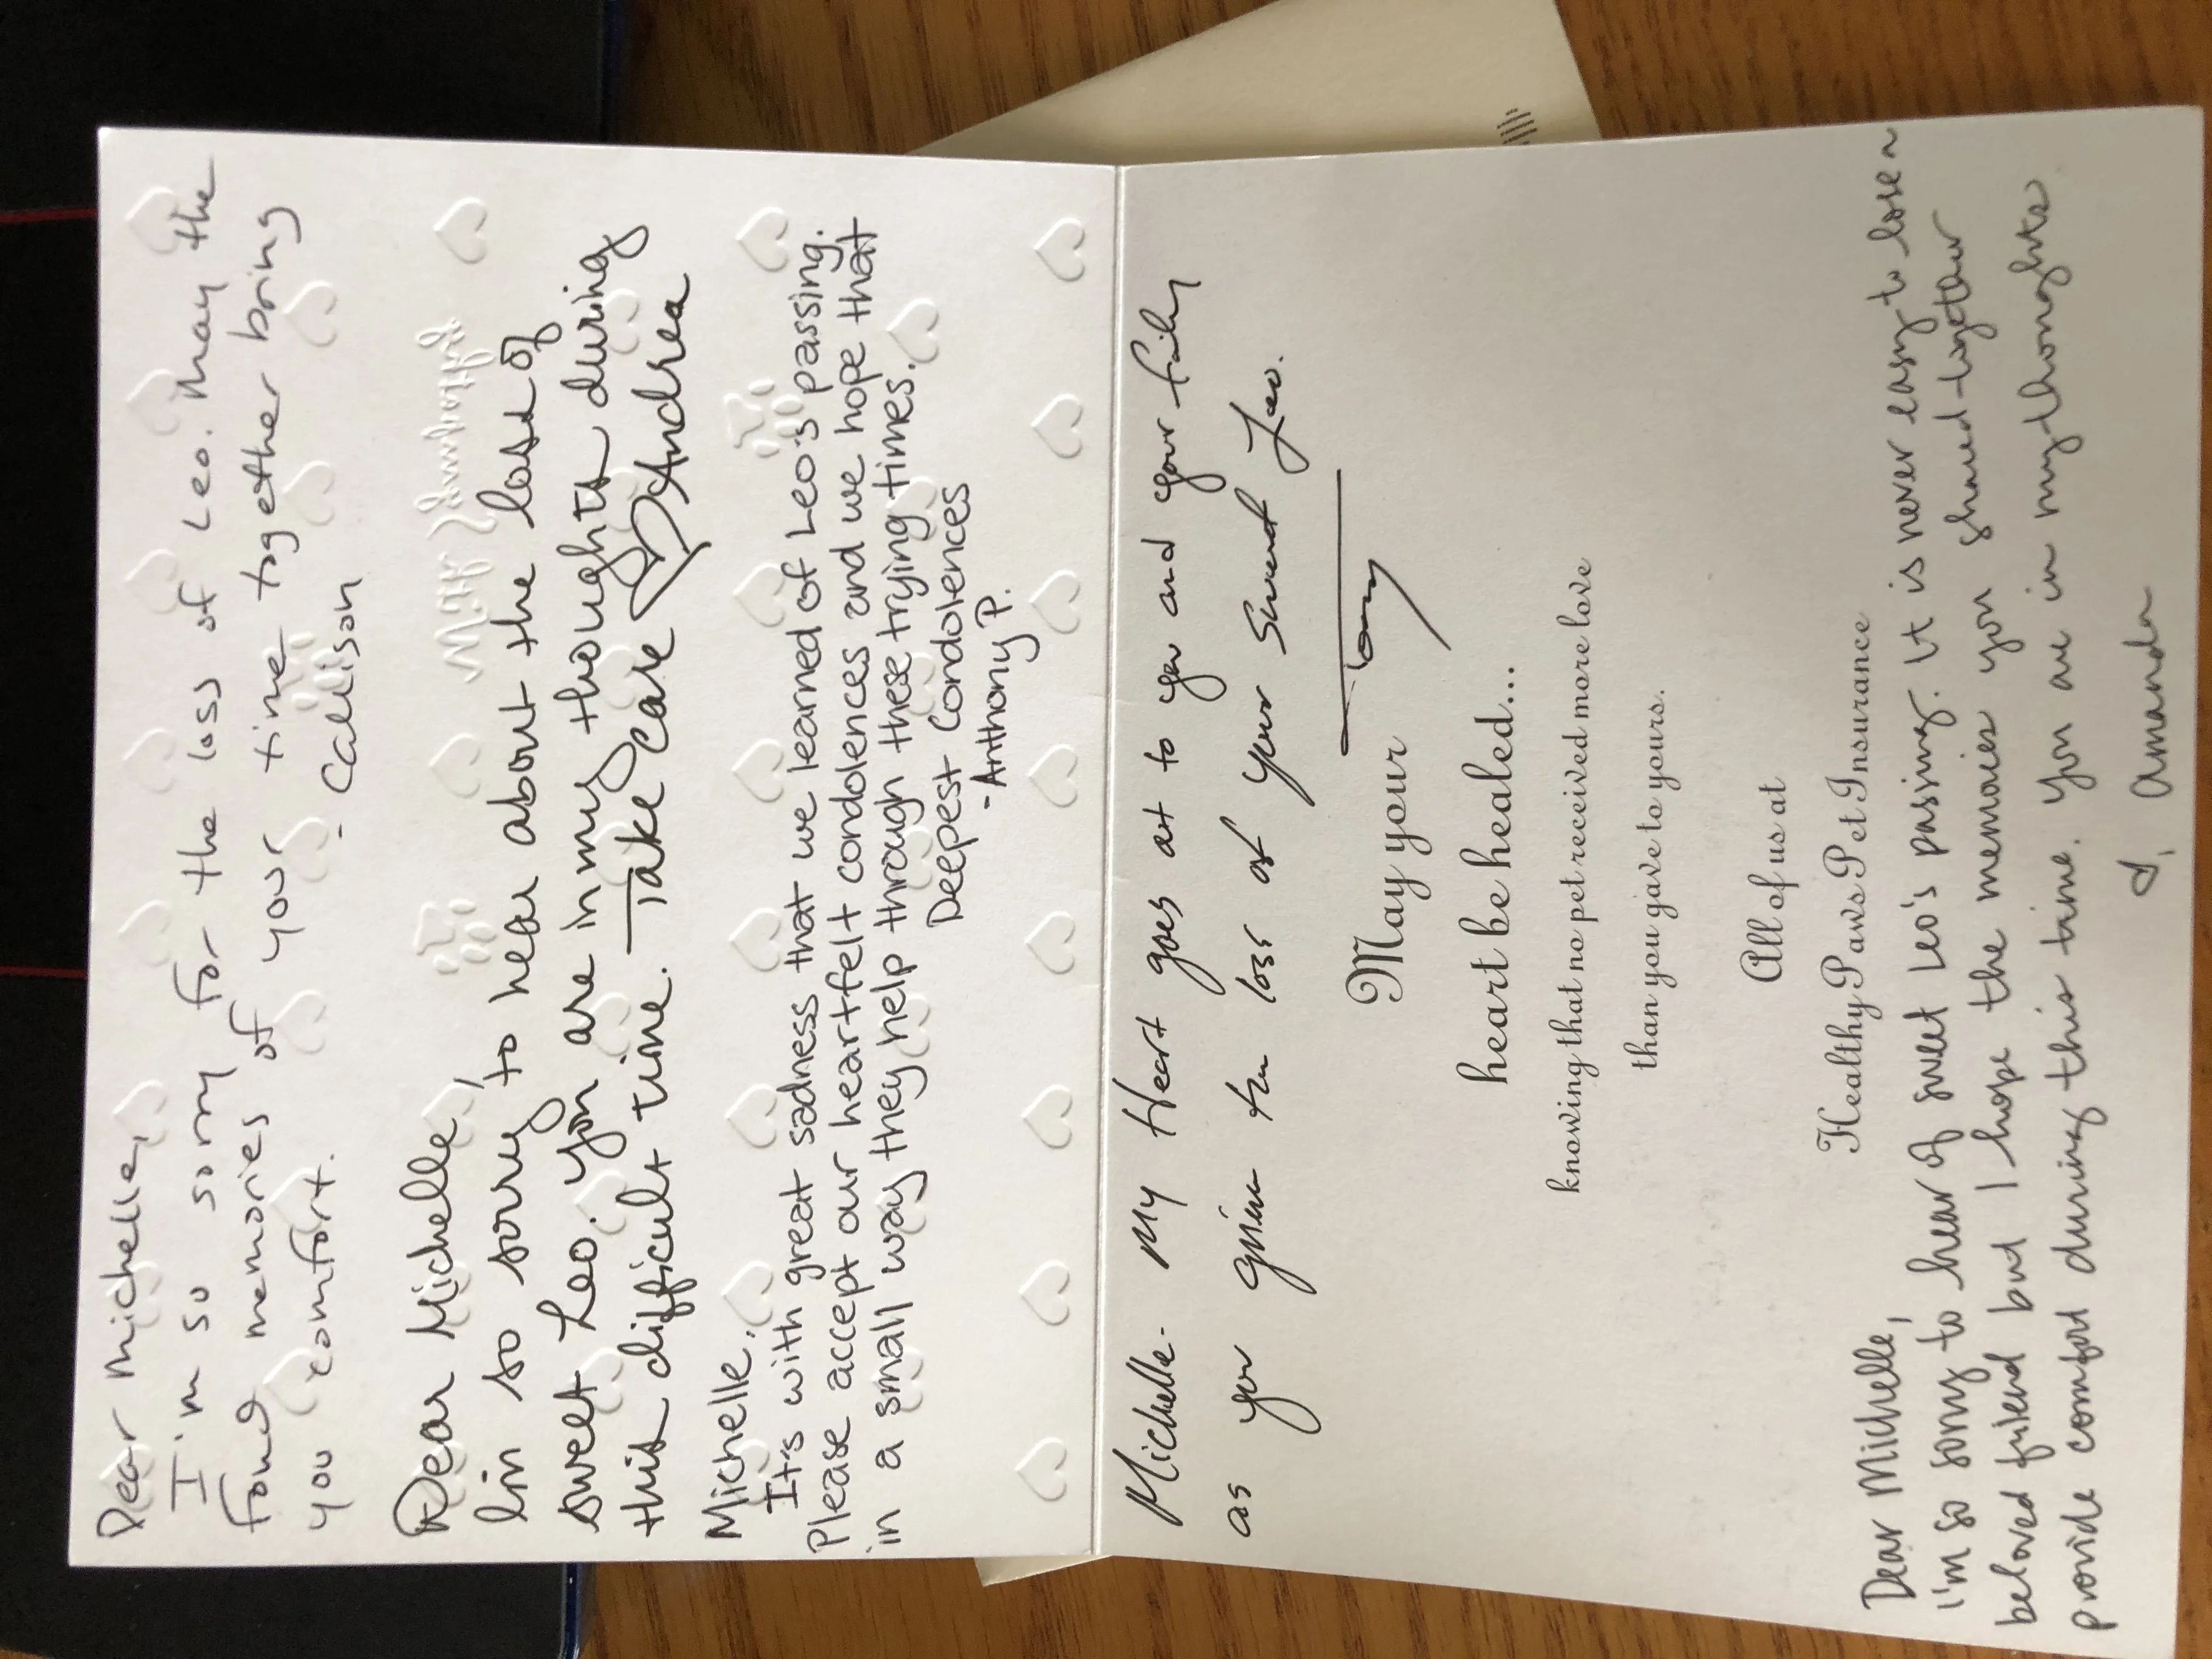 Dear Michelle,
I'm so sorry for the loss of Leo. May the
fond memories of your time together bring
you comfort.
- Callison
With Sympathy
Dear Michelle,
I'm so sorry to hear about the loss of
sweet Leo. You are in my thoughts during
this difficult time. Take Care Andrea
Michelle,
It's with great sadness that we learned of Leo's passing.
Please accept our heartfelt condolences and we hope that
in a small way they help through these trying times.
Deepest Condolences
- Anthony P.
Michelle - My Heart goes out to you and your family
as you grieve the loss of your sweet Leo.
Tony
May your
heart be healed...
knowing that no pet received more love
than you gave to yours.
All of us at
Healthy Paws Pet Insurance
Dear Michelle,
I'm so sorry to hear of sweet Leo's passing. It is never easy to lose a
beloved friend but I hope the memories you shared together
provide comfort during this time. You are in my thoughts.
Amanda